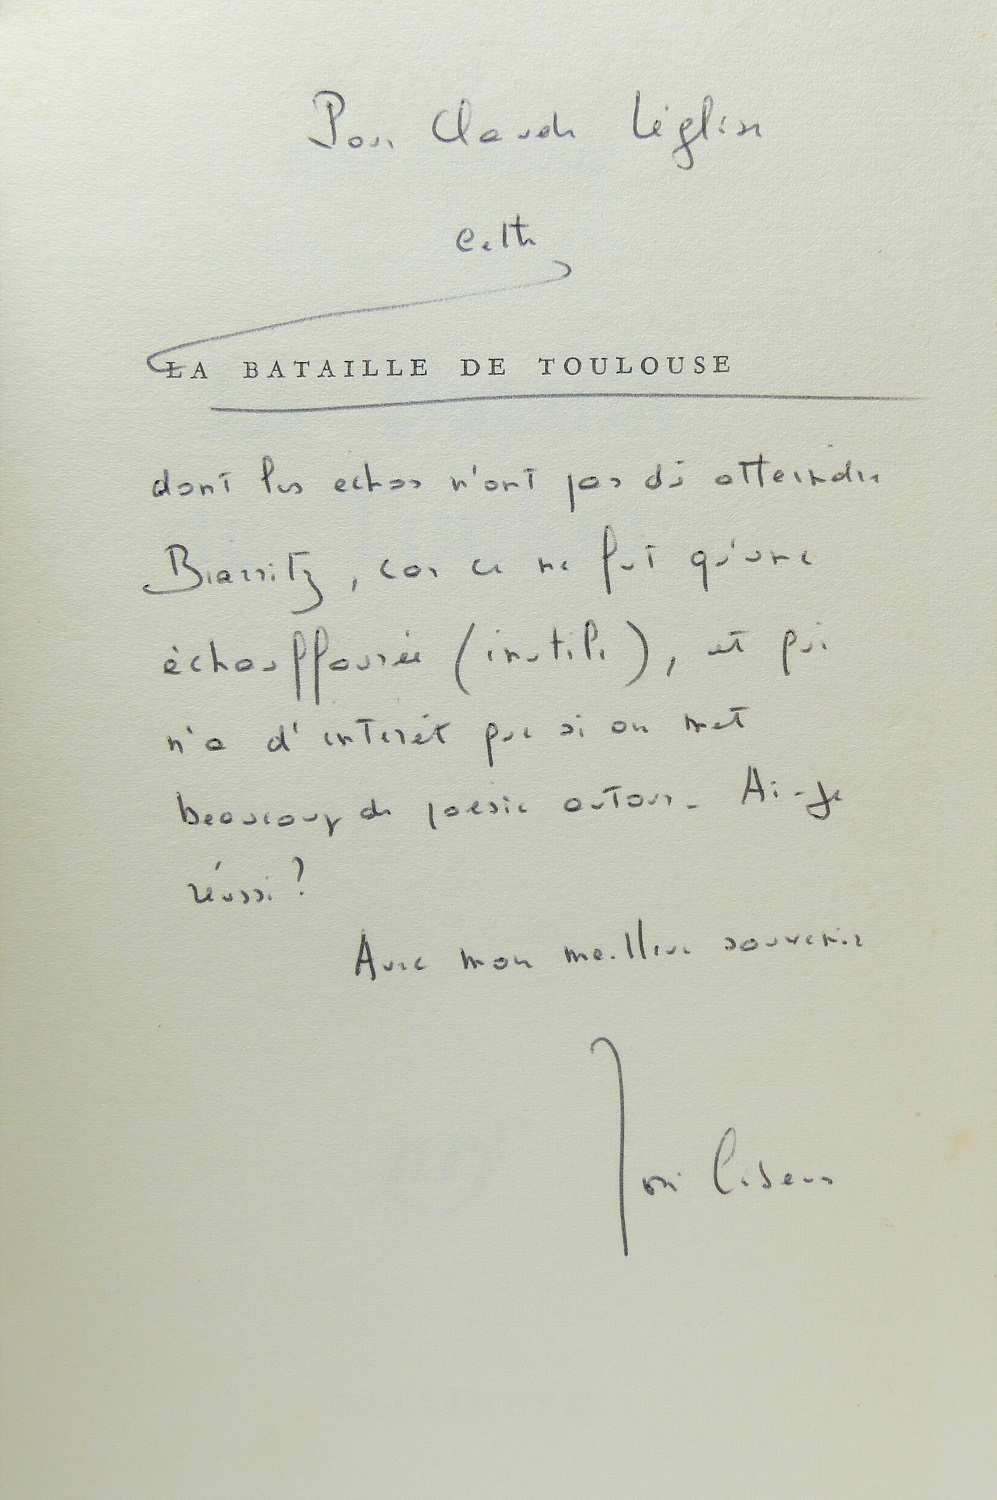 Pour Claude Léglise
cette
LA BATAILLE DE TOULOUSE
dont les échos n'ont pas dû atteindre
Biarritz, car ce ne fut qu'une
échauffourée (inutile), et qui
n'a d'intérêt que si on met
beaucoup de poésie autour. Ai-je
réussi ?
Avec mon meilleur souvenir
José Cabanis